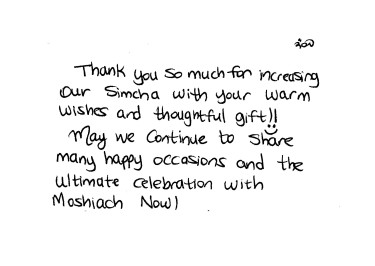 בס"ד
Thank you so much for increasing
our Simcha with your warm
wishes and thoughtful gift!!
May we continue to share
many happy occasions and the
ultimate celebration with
Moshiach Now!